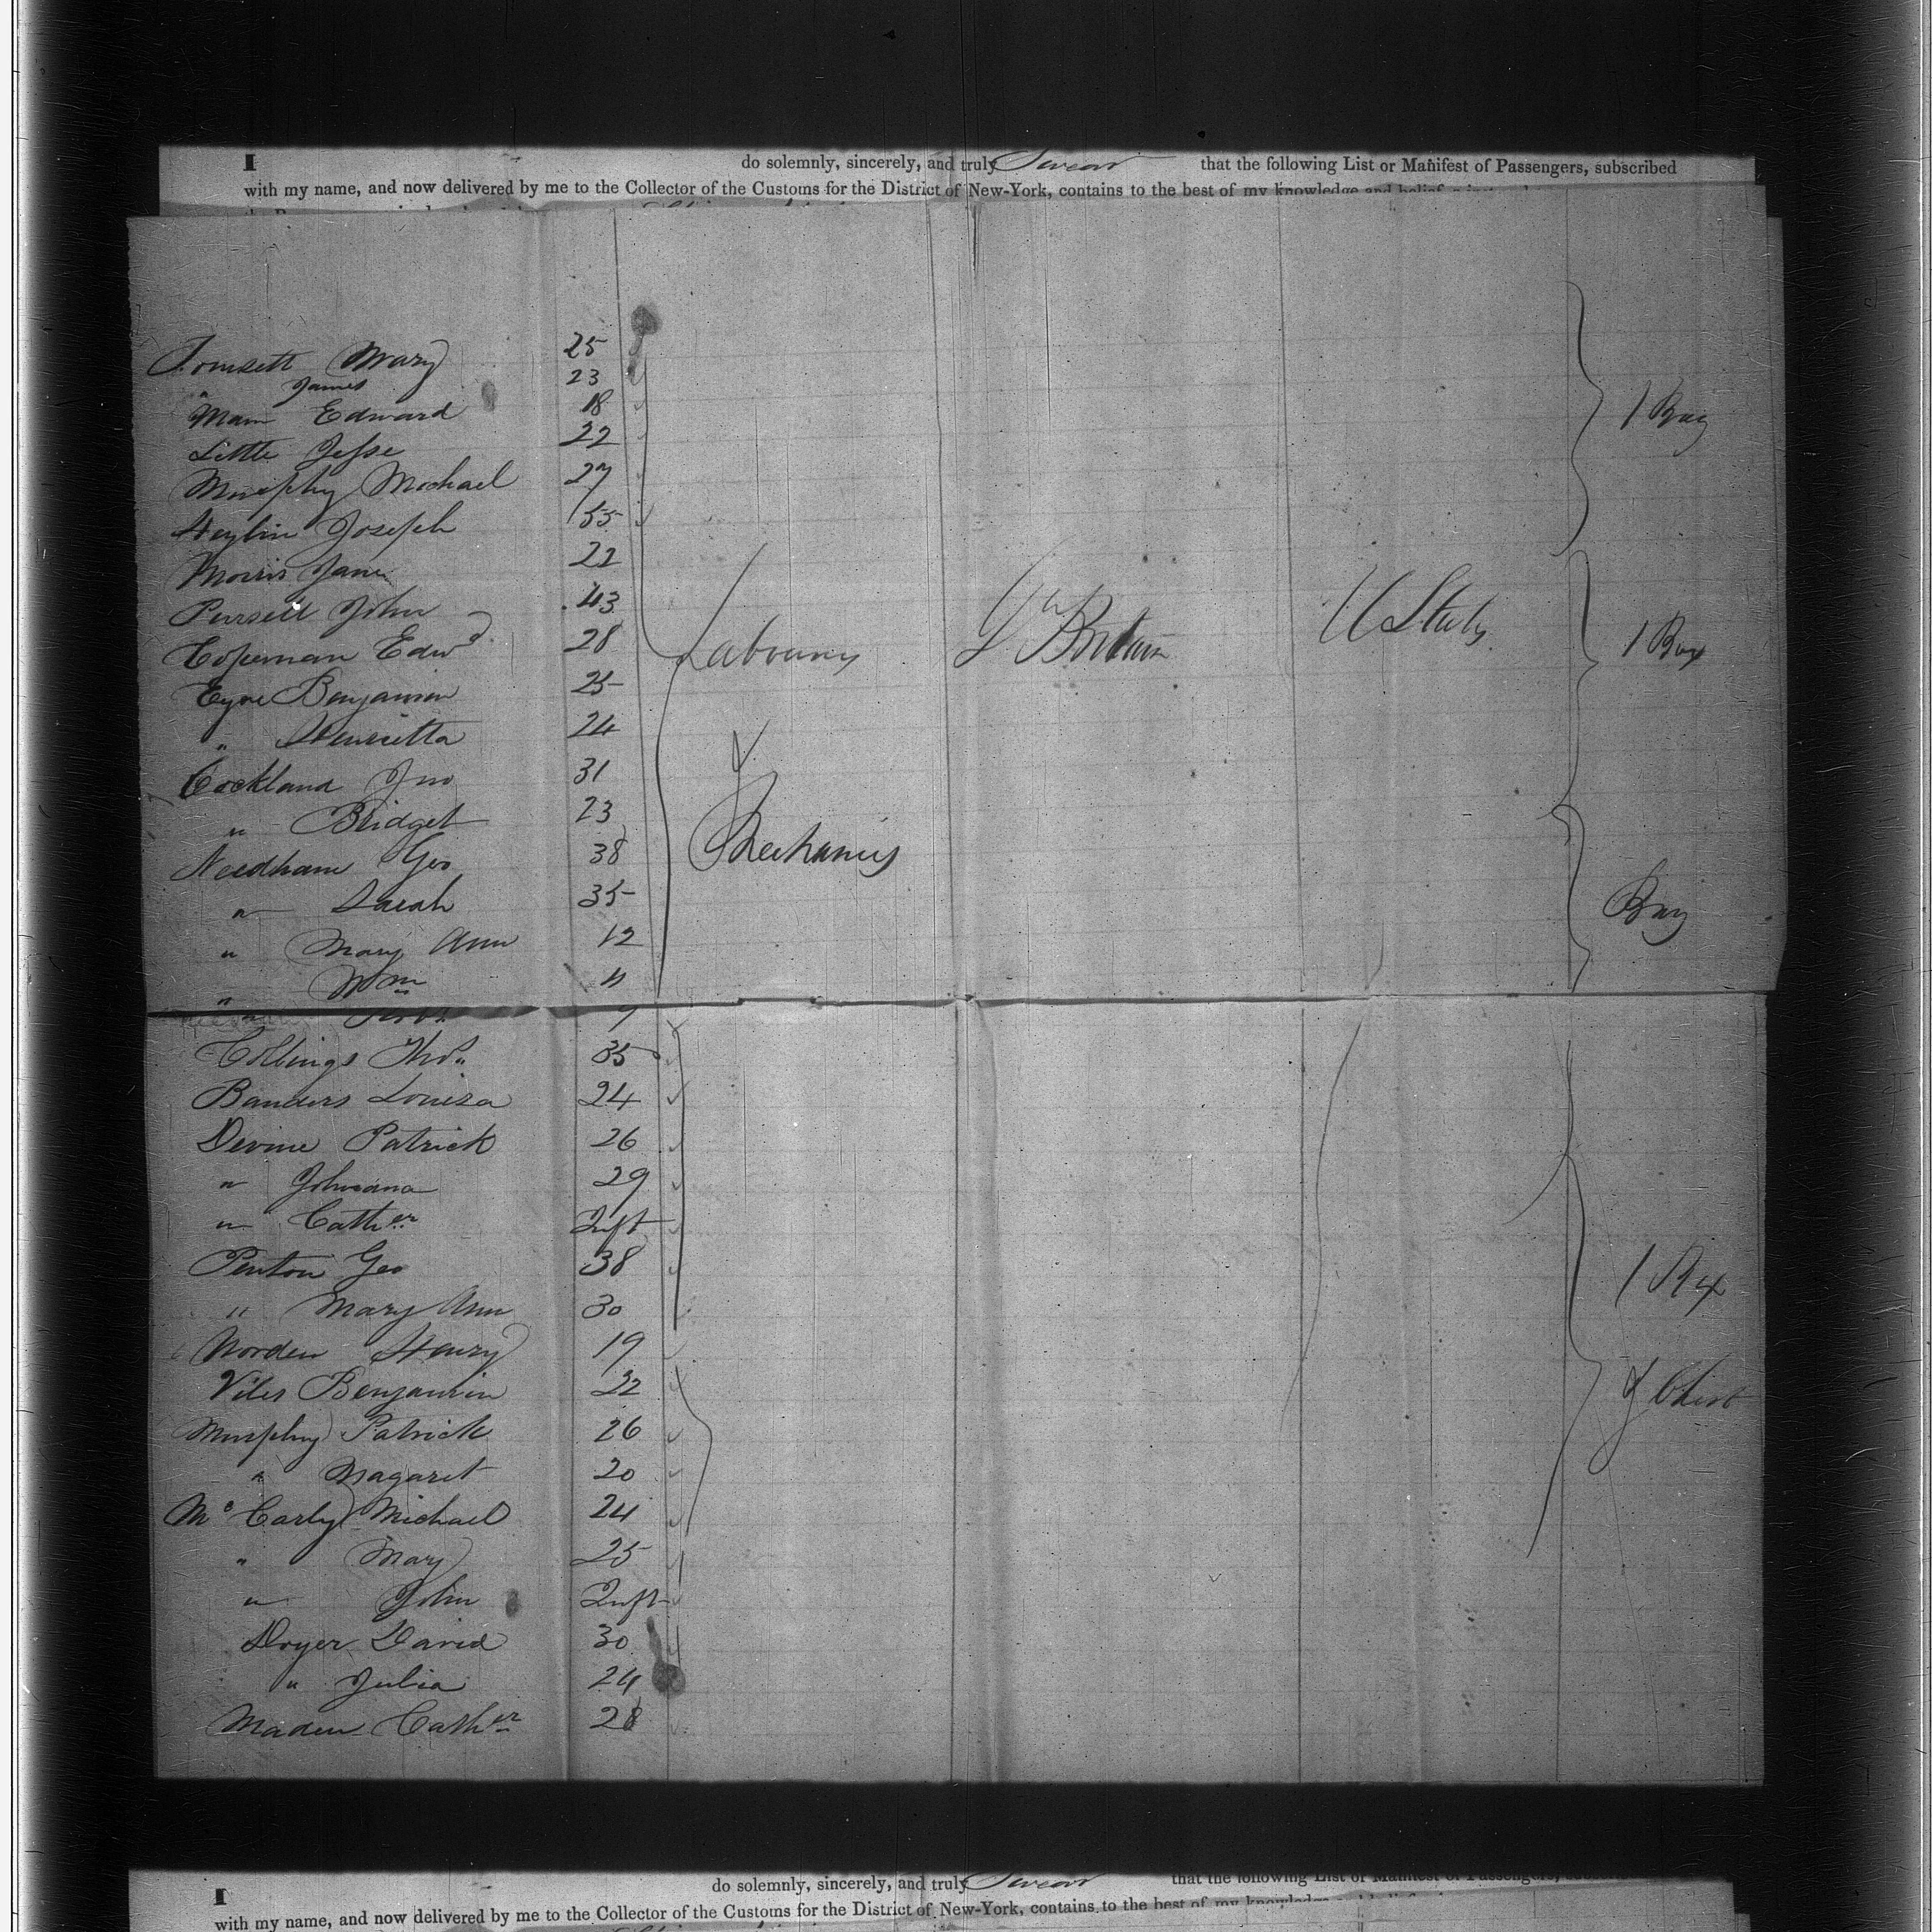 I do solemnly, sincerely, and truly Swear that the following List or Manifest of Passengers, subscribed
with my name, and now delivered by me to the Collector of the Customs for the District of New-York, contains to the best of my knowledge and belief
Tomsett Mary 25
" James 23
Mam Edward 18
Little Jesse 22
Murphy Michael 27
Heylin Joseph 35 1 Bag
Morris Jane 22
Pursell John 43
Copeman Edwd 28 Labourers Gt Britain U States 1 Box
Eyre Benjamin 25
" Henrietta 24
Cockland Jno 31
" Bridget 23
Needham Geo 38 Mechanics
" Sarah 35 Bag
" Mary Ann 12
" Wm 11
" 9
Collings Thos 35
Banders Louisa 24
Devine Patrick 26
" Johanna 29
" Cather Inft
Penton Geo 38 1 Box
" Mary Ann 30
Norden Henry 19
Viles Benjamin 22 & Chest
Murphy Patrick 26
" Magaret 20
Mc Carly Michael 24
" Mary 25
" John Inft
Dryer David 30
" Julia 24
Maden Cather 28
I do solemnly, sincerely, and truly Swear that the following List or Manifest of Passengers,
with my name, and now delivered by me to the Collector of the Customs for the District of New-York, contains to the best of my knowledge